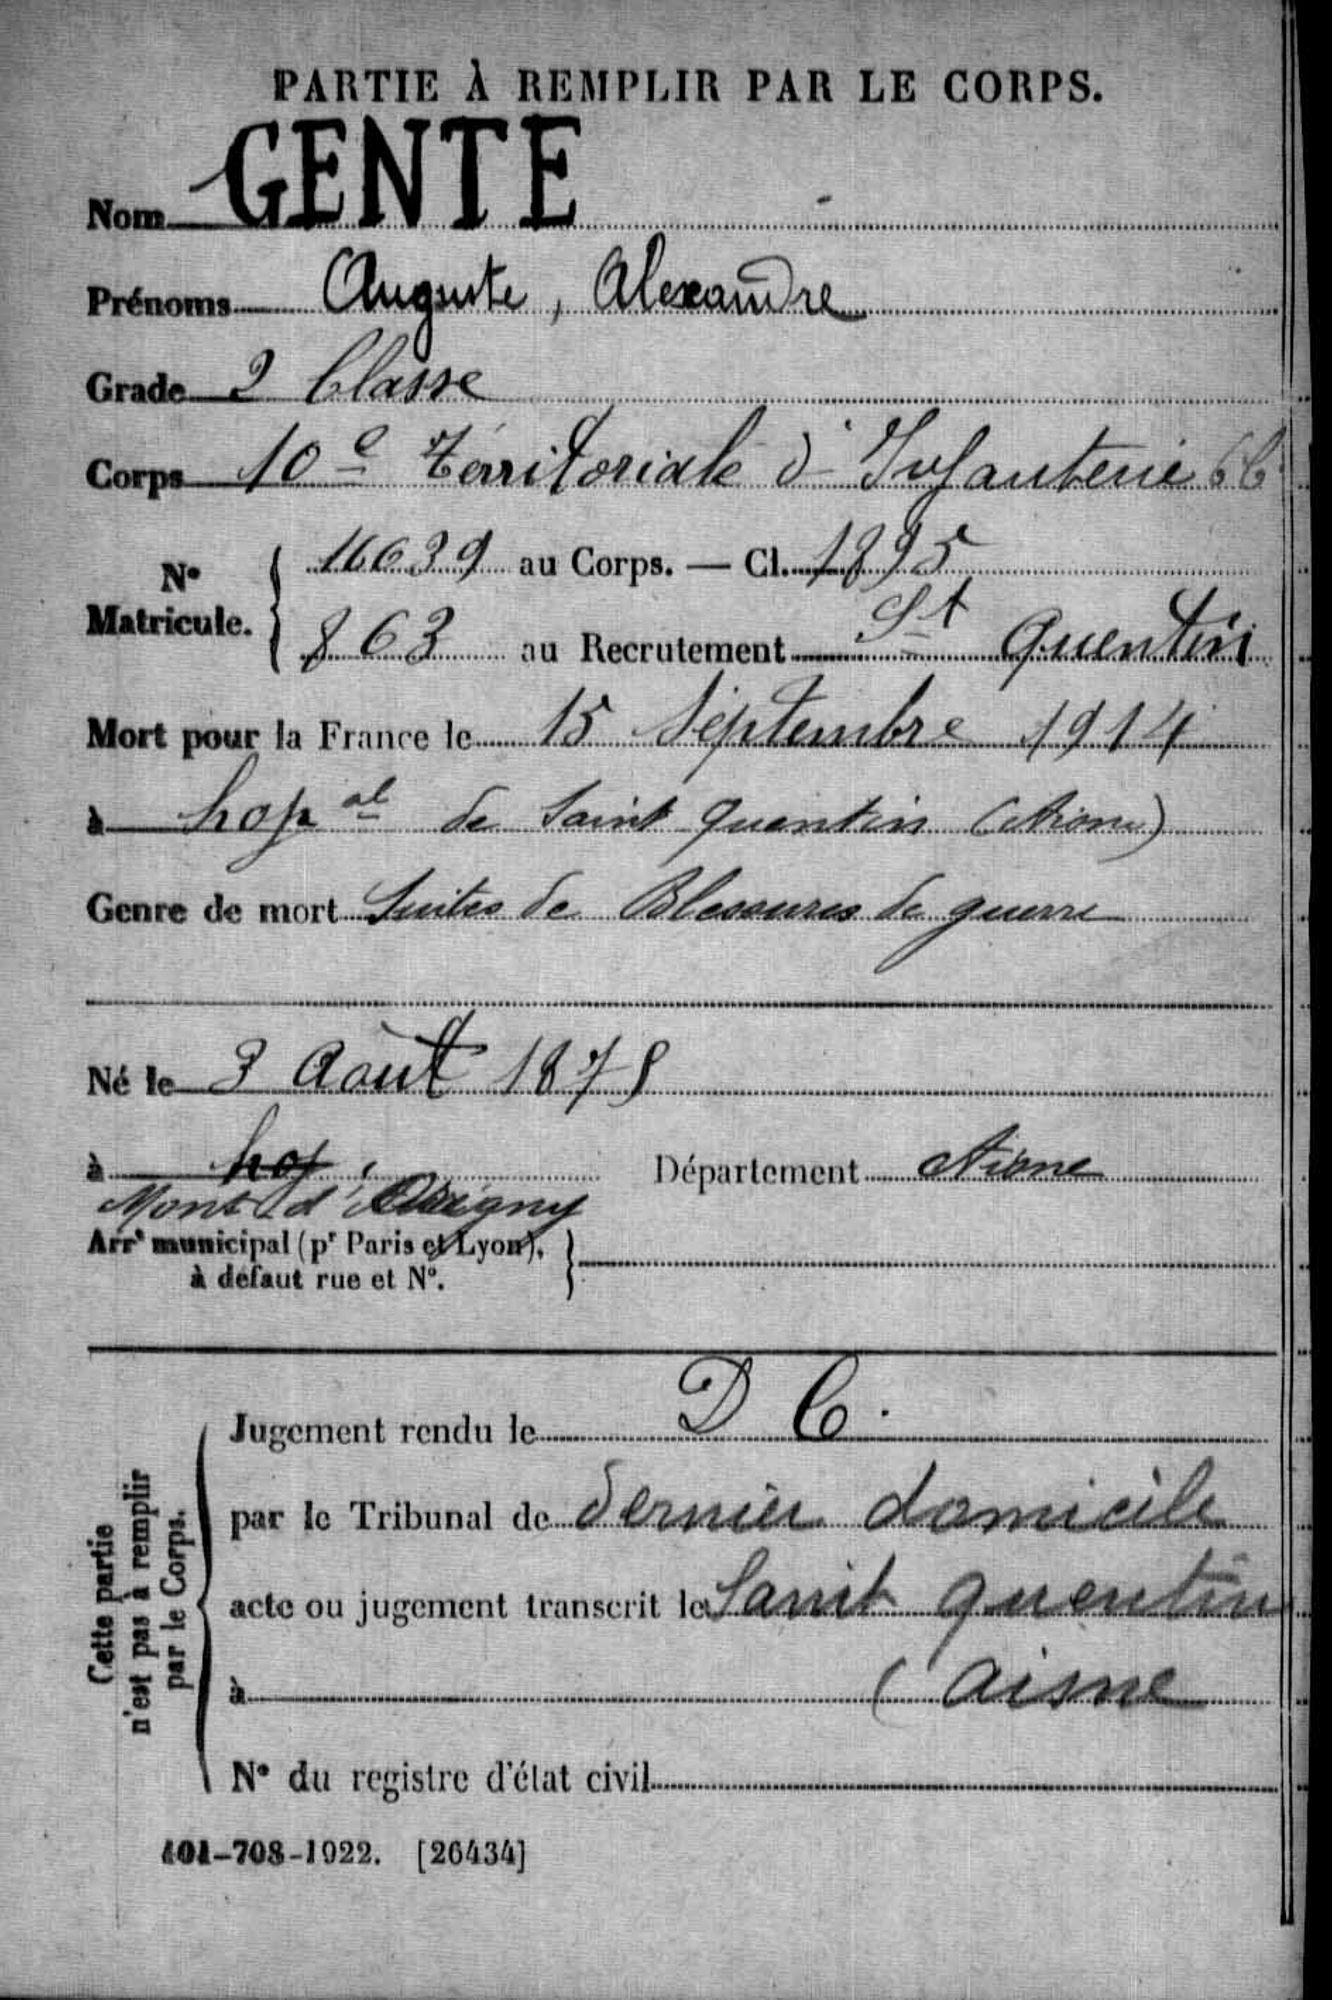 PARTIE À REMPLIR PAR LE CORPS.
Nom GENTE
Prénoms Auguste, Alexandre
Grade 2 Classe
Corps 10e Térritoriale d'Infanterie 6 C
N° Matricule. 16639 au Corps. — Cl. 1895
863 au Recrutement St Quentin
Mort pour la France le 15 Septembre 1914
à hopal de Saint Quentin (Aisne)
Genre de mort Suites de Blessures de guerre
Né le 3 Août 1875
à hop. Département Aisne
Mont d'Origny
Arrt municipal (pr Paris et Lyon),
à défaut rue et N°.
Cette partie n'est pas à remplir par le Corps.
Jugement rendu le D C.
par le Tribunal de dernier domicile
acte ou jugement transcrit le Saint quentin
à (aisne
N° du registre d'état civil
101-708-1922. [26434]